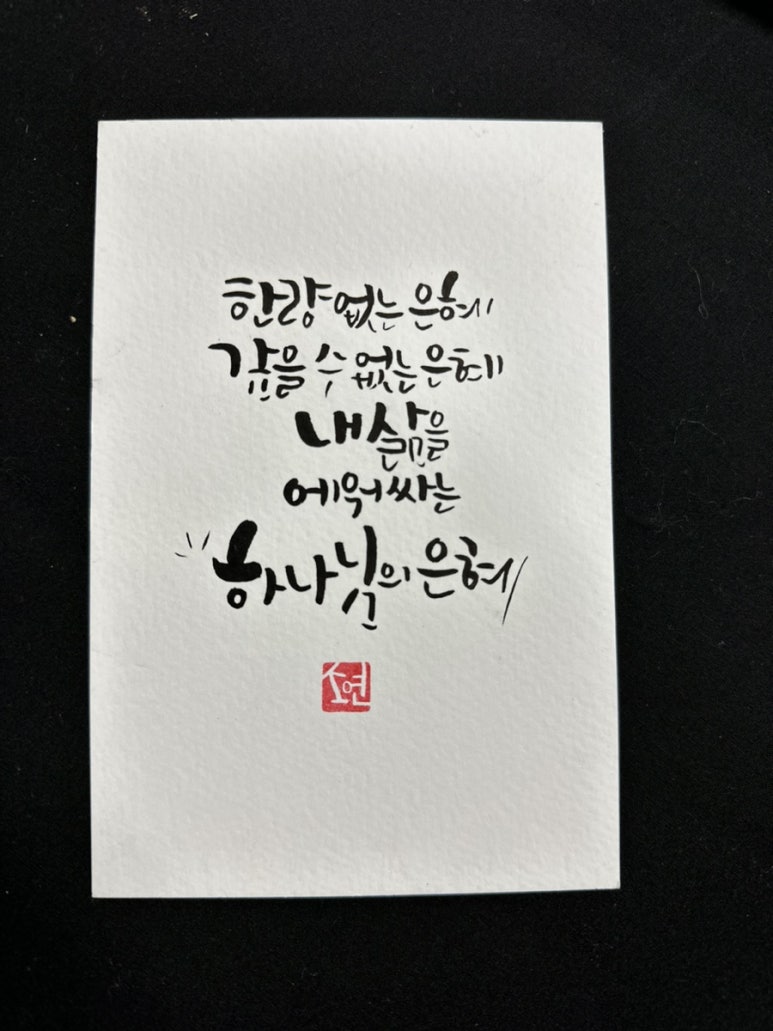 한량 없는 은혜
갚을 수 없는 은혜
내 삶을
에워싸는
하나님의 은혜
소연